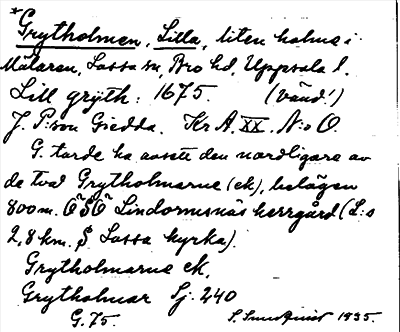 *Grytholmen, Lilla, liten holme i
Mälaren, Lossa sn, Bro hd, Uppsala l.
Lill grÿth: 1675. (vänd!)
J. P:son Giedda. Kr A. XX. N:o O.
G. torde ha avsett den nordligare av
de två Grytholmarne (ek), belägen
800 m. OSO Lindormsnäs herrgård (L:s
2,8 km. S Lossa kyrka).
Grytholmarne ek.
Grytholmar Sj. 240
G. 75. S. Sundquist 1935.